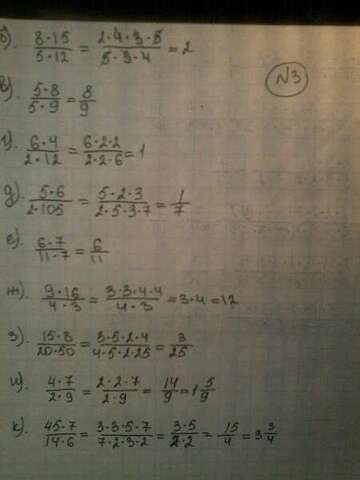 б). 8·15/5·12 = 2·4·3·5/5·3·4 = 2
N3
в). 5·8/5·9 = 8/9
г). 6·4/2·12 = 6·2·2/2·2·6 = 1
д). 5·6/2·105 = 5·2·3/2·5·3·7 = 1/7
е). 6·7/11·7 = 6/11
ж). 9·16/4·3 = 3·3·4·4/4·3 = 3·4 = 12
з). 15·8/20·50 = 3·5·2·4/4·5·2·25 = 3/25
и). 4·7/2·9 = 2·2·7/2·9 = 14/9 = 1 5/9
к). 45·7/14·6 = 3·3·5·7/7·2·3·2 = 3·5/2·2 = 15/4 = 3 3/4